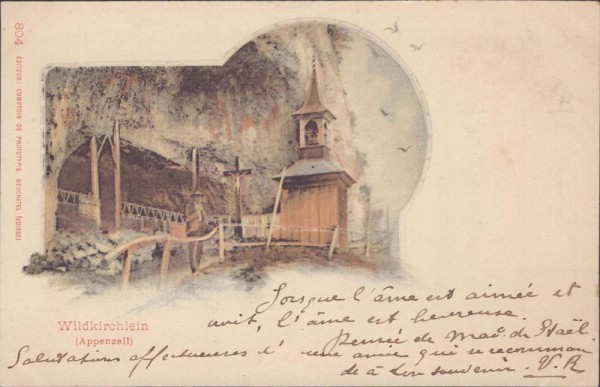 804 ÉDITEUR: COMPTOIR DE PHOTOTYPIE, NEUCHATEL (SUISSE)
Wildkirchlein
(Appenzell)
Lorsque l'âme est aimée et
croit, l'âme est heureuse.
Pensée de Mad. de Staël.
Salutations affectueuses d'une amie qui se recomman
de à bon souvenir. V. R